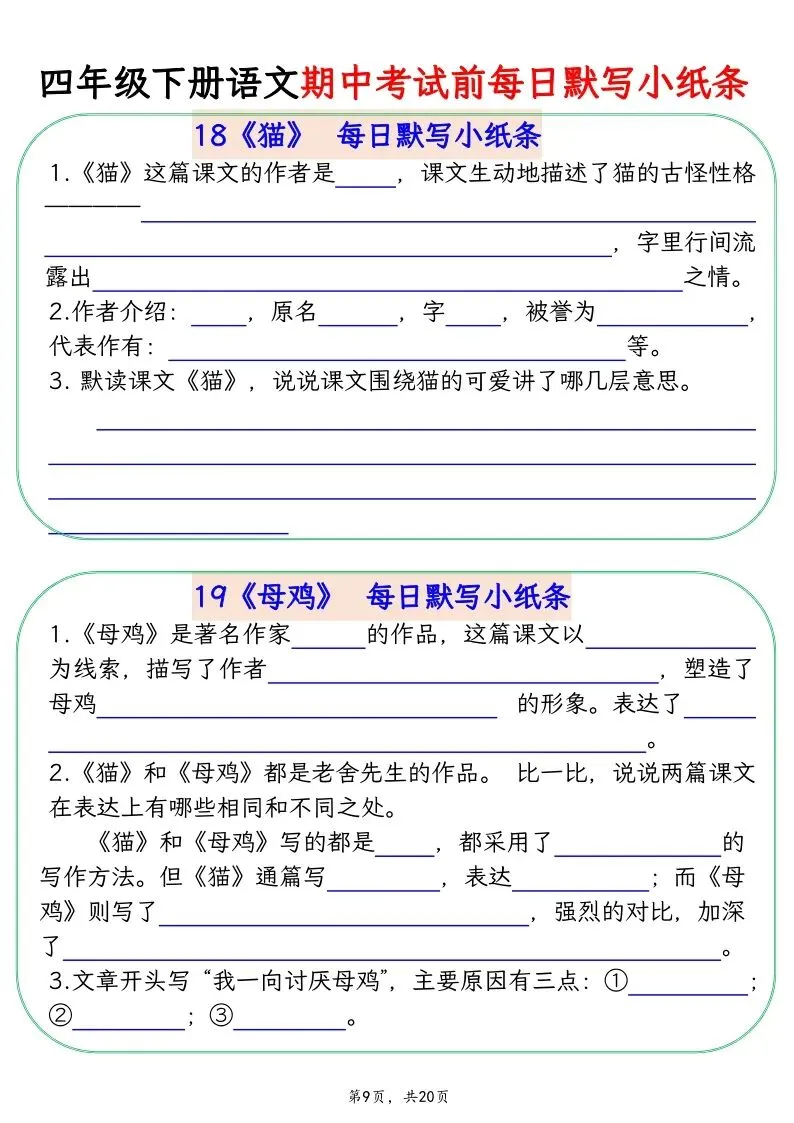 四年级下册语文期中考试前每日默写小纸条
18《猫》 每日默写小纸条
1.《猫》这篇课文的作者是_____，课文生动地描述了猫的古怪性格
————___________________________________________________
_______________________________________________，字里行间流
露出_________________________________________________之情。
2.作者介绍：_____，原名_______，字_____，被誉为_____________，
代表作有：______________________________________等。
3. 默读课文《猫》，说说课文围绕猫的可爱讲了哪几层意思。
_______________________________________________________
___________________________________________________________
___________________________________________________________
____________________
19《母鸡》 每日默写小纸条
1.《母鸡》是著名作家______的作品，这篇课文以______________
为线索，描写了作者_________________________________，塑造了
母鸡__________________________________ 的形象。表达了______
__________________________________________________。
2.《猫》和《母鸡》都是老舍先生的作品。 比一比，说说两篇课文
在表达上有哪些相同和不同之处。
《猫》和《母鸡》写的都是_____，都采用了______________的
写作方法。但《猫》通篇写__________，表达____________；而《母
鸡》则写了_______________________________，强烈的对比，加深
了_______________________________________________________。
3.文章开头写“我一向讨厌母鸡”，主要原因有三点：①__________；
②__________；③__________。
第9页，共20页